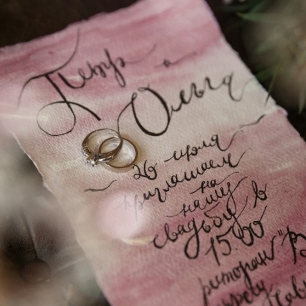 Петр
и
Ольга
26 июля
приглашаем
на
нашу
свадьбу в
15:00
ресторан "В